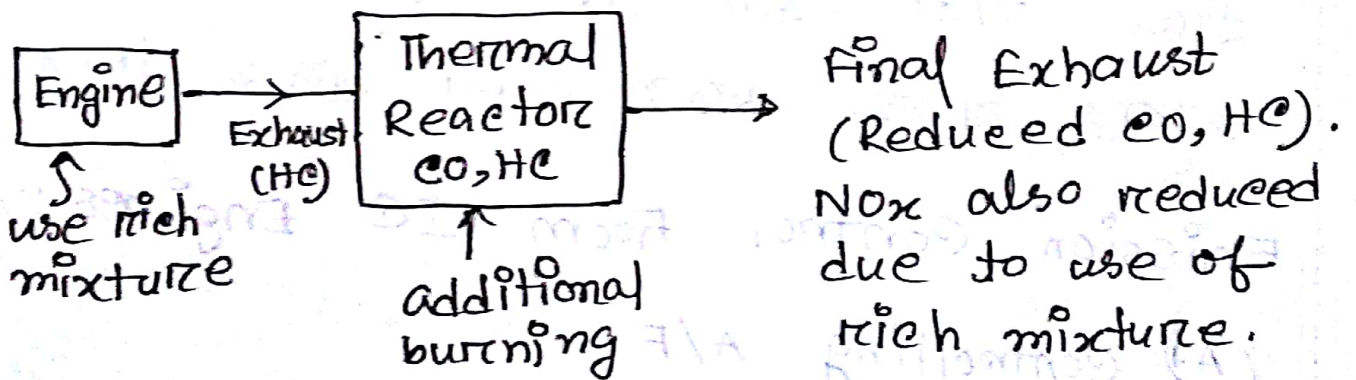 Engine
Exhaust
(HC)
use rich
mixture
Thermal
Reactor
CO, HC
additional
burning
Final Exhaust
(Reduced CO, HC).
NOx also reduced
due to use of
rich mixture.